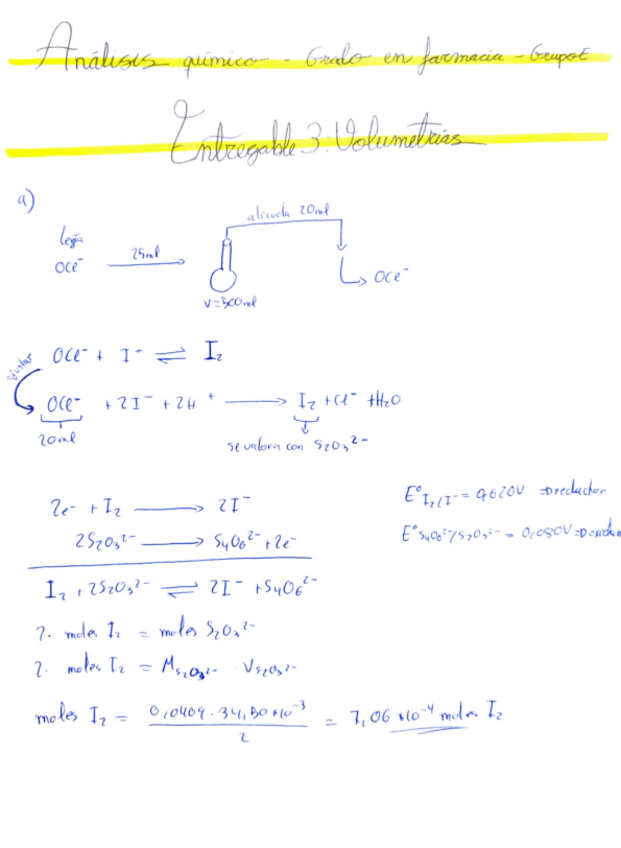 Análisis químico - Grado en farmacia - Grupo E
Entregable 3: Volumetrías
a)
alicuota 20ml
Lejía
OCl⁻
25ml
OCl⁻
V=500ml
OCl⁻ + I⁻ ⇌ I₂
Ajustar
OCl⁻ + 2I⁻ + 2H⁺ ⟶ I₂ + Cl⁻ + H₂O
20ml
se valora con S₂O₃²⁻
2e⁻ + I₂ ⟶ 2I⁻
E°I₂/I⁻ = 0,620V ⇒ reductor
2S₂O₃²⁻ ⟶ S₄O₆²⁻ + 2e⁻
E°S₄O₆²⁻/S₂O₃²⁻ = 0,080V ⇒
I₂ + 2S₂O₃²⁻ ⇌ 2I⁻ + S₄O₆²⁻
2· moles I₂ = moles S₂O₃²⁻
2· moles I₂ = M S₂O₃²⁻ · V S₂O₃²⁻
moles I₂ = 0,0409 · 34,50 × 10⁻³ / 2 = 7,06 × 10⁻⁴ moles I₂